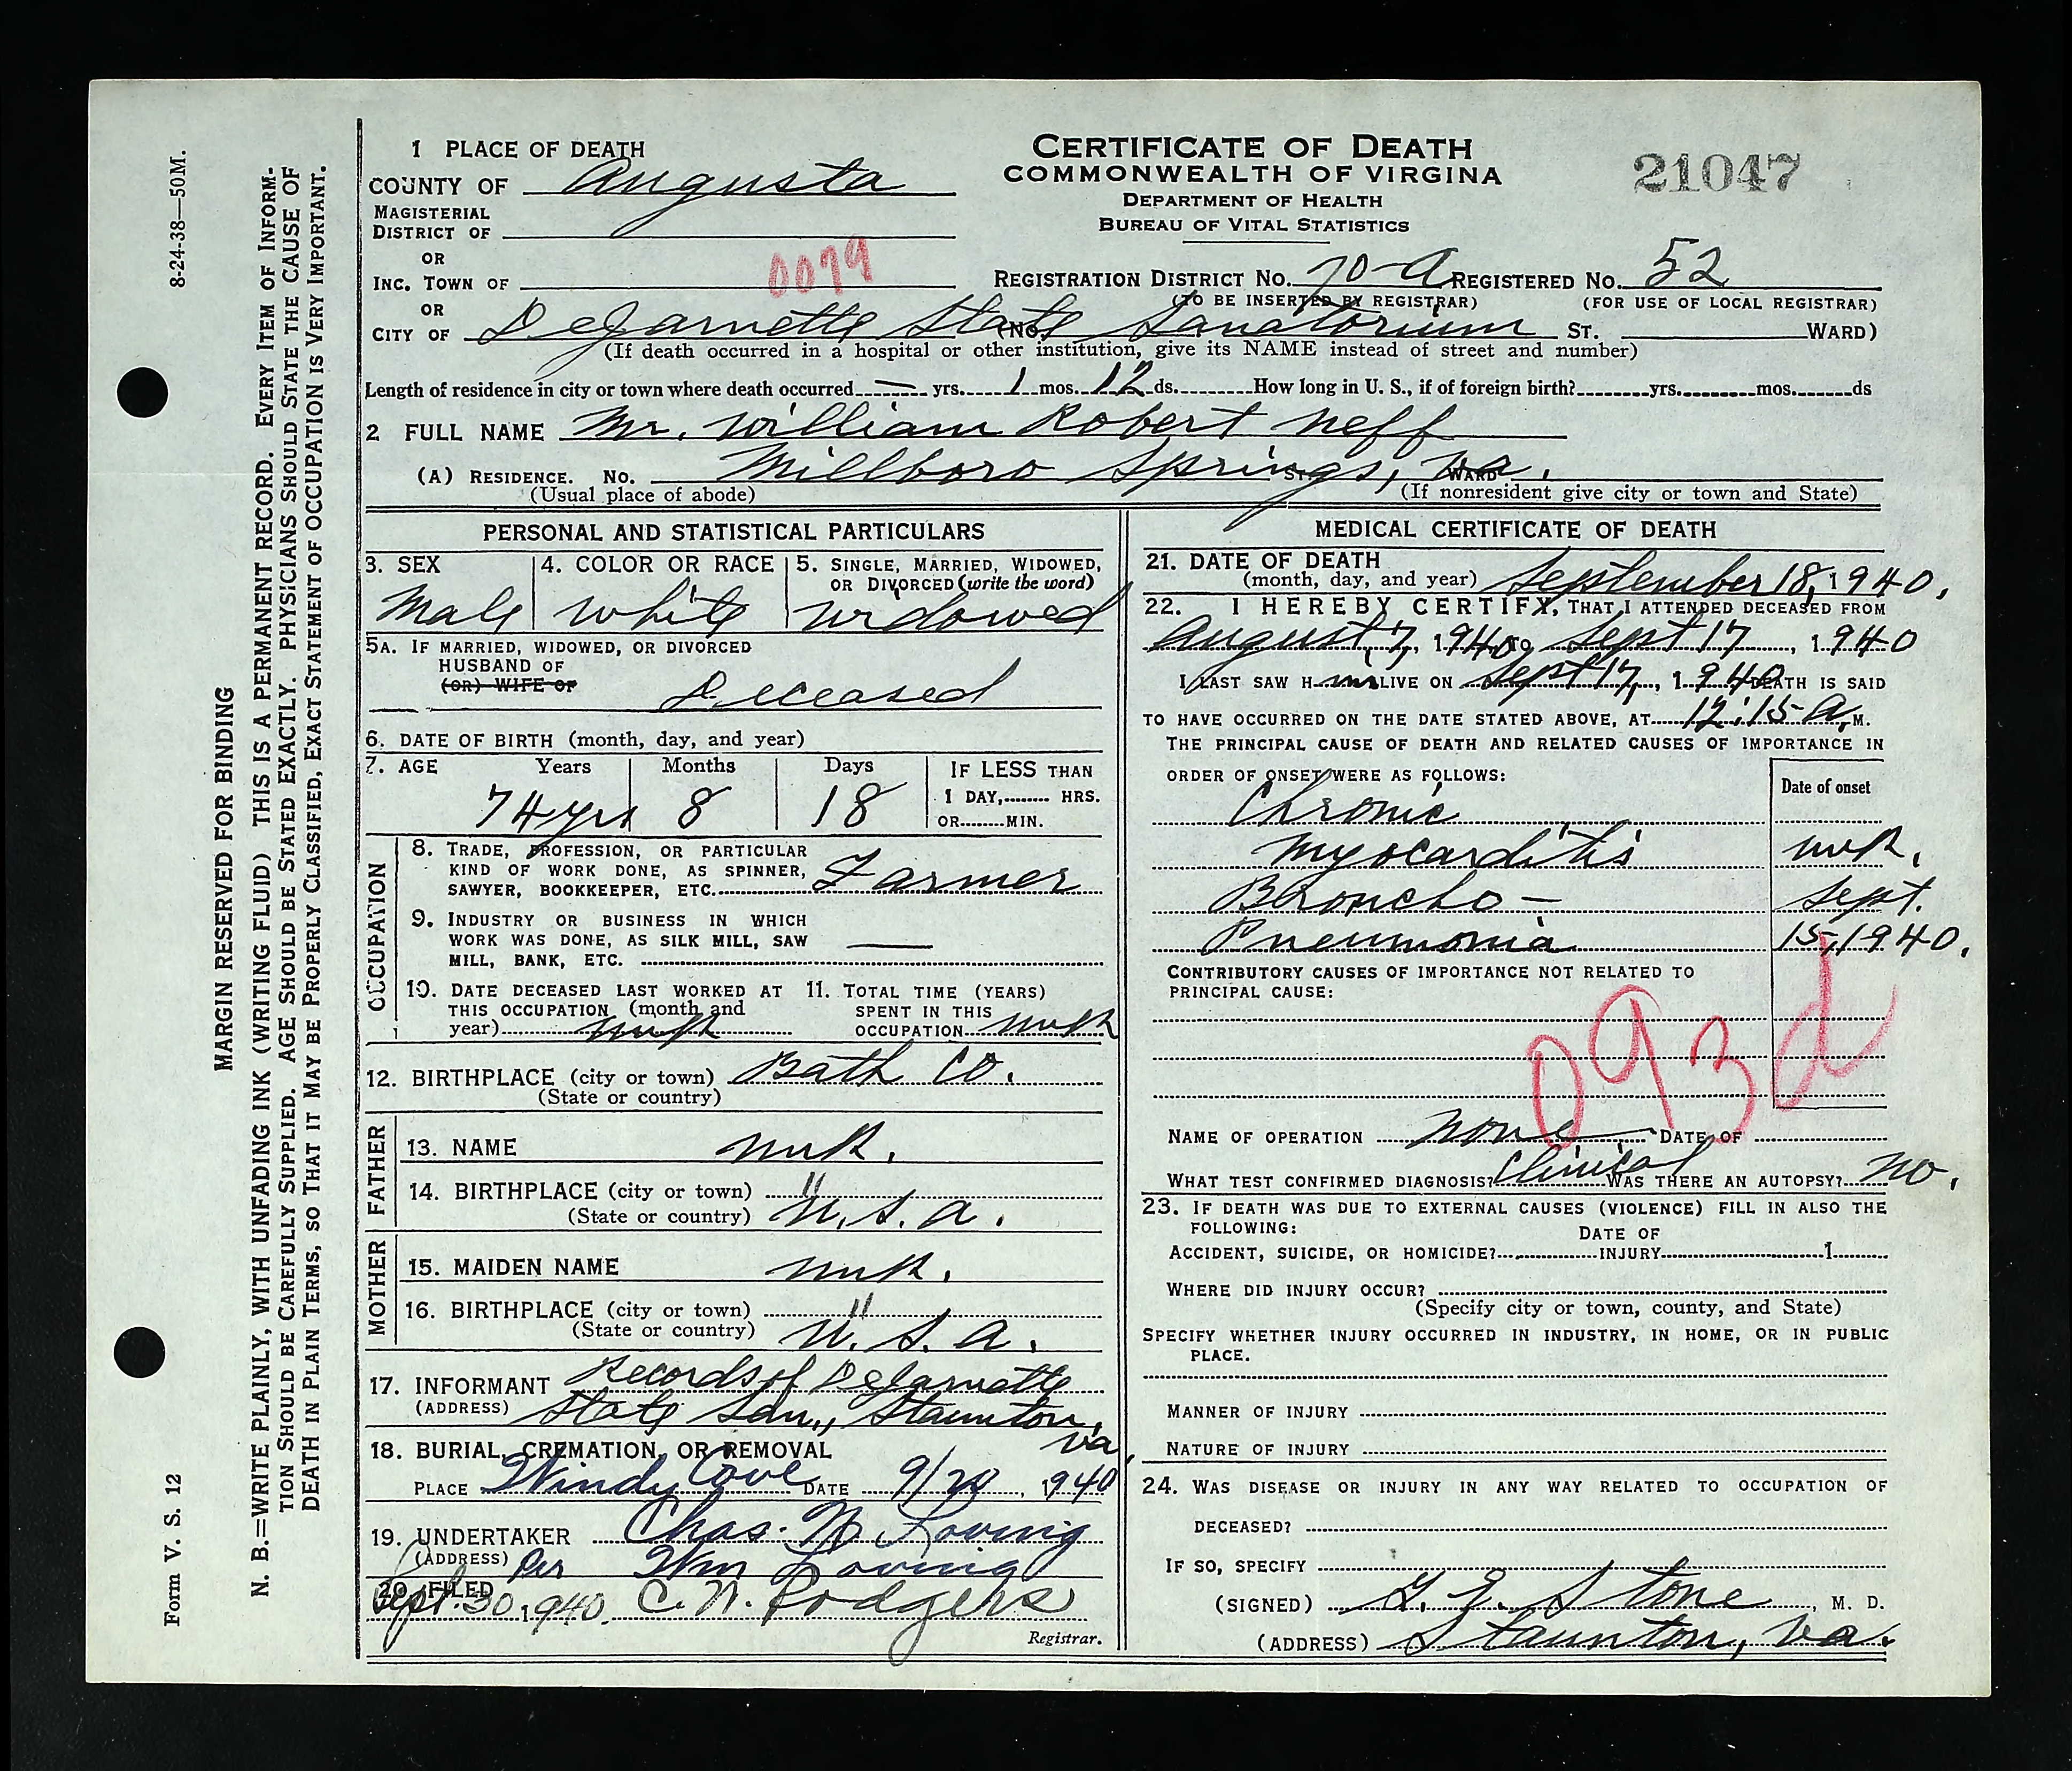 8-24-38—50M.
MARGIN RESERVED FOR BINDING
N. B.=WRITE PLAINLY, WITH UNFADING INK (WRITING FLUID) THIS IS A PERMANENT RECORD. EVERY ITEM OF INFORM-
TION SHOULD BE CAREFULLY SUPPLIED. AGE SHOULD BE STATED EXACTLY. PHYSICIANS SHOULD STATE THE CAUSE OF
DEATH IN PLAIN TERMS, SO THAT IT MAY BE PROPERLY CLASSIFIED, EXACT STATEMENT OF OCCUPATION IS VERY IMPORTANT.
Form V. S. 12
1 PLACE OF DEATH
COUNTY OF Augusta
MAGISTERIAL
DISTRICT OF
OR
INC. TOWN OF
0079
OR
CITY OF DeJarnette State Sanatorium (No. ST. WARD)
CERTIFICATE OF DEATH
COMMONWEALTH OF VIRGINA
DEPARTMENT OF HEALTH
BUREAU OF VITAL STATISTICS
21047
REGISTRATION DISTRICT NO. 70-A REGISTERED NO. 52
(TO BE INSERTED BY REGISTRAR) (FOR USE OF LOCAL REGISTRAR)
(If death occurred in a hospital or other institution, give its NAME instead of street and number)
Length of residence in city or town where death occurred — yrs. 1 mos. 12 ds. How long in U. S., if of foreign birth? yrs. mos. ds
2 FULL NAME Mr. William Robert Neff
(A) RESIDENCE. No. Millboro Springs, Va. ST. WARD
(Usual place of abode) (If nonresident give city or town and State)
PERSONAL AND STATISTICAL PARTICULARS
3. SEX 4. COLOR OR RACE 5. SINGLE, MARRIED, WIDOWED,
OR DIVORCED (write the word)
Male white widowed
5A. IF MARRIED, WIDOWED, OR DIVORCED
HUSBAND OF
(OR) WIFE OF Deceased
6. DATE OF BIRTH (month, day, and year)
7. AGE Years Months Days IF LESS THAN
1 DAY, HRS.
OR MIN.
74 yrs 8 18
OCCUPATION
8. TRADE, PROFESSION, OR PARTICULAR
KIND OF WORK DONE, AS SPINNER,
SAWYER, BOOKKEEPER, ETC. Farmer
9. INDUSTRY OR BUSINESS IN WHICH
WORK WAS DONE, AS SILK MILL, SAW
MILL, BANK, ETC. —
10. DATE DECEASED LAST WORKED AT
THIS OCCUPATION (month and
year) unk
11. TOTAL TIME (YEARS)
SPENT IN THIS
OCCUPATION unk
12. BIRTHPLACE (city or town) Bath Co.
(State or country)
FATHER
13. NAME unk.
14. BIRTHPLACE (city or town) "
(State or country) U.S.A.
MOTHER
15. MAIDEN NAME unk.
16. BIRTHPLACE (city or town) "
(State or country) U.S.A.
17. INFORMANT Records of DeJarnette
(ADDRESS) State San., Staunton, Va.
18. BURIAL, CREMATION, OR REMOVAL
PLACE Windy Cove DATE 9/20, 1940
19. UNDERTAKER Chas. W. Loving
(ADDRESS) Per Wm Loving
20. FILED
Sept. 30, 1940. C. N. Rodgers
Registrar.
MEDICAL CERTIFICATE OF DEATH
21. DATE OF DEATH
(month, day, and year) September 18, 1940.
22. I HEREBY CERTIFY, THAT I ATTENDED DECEASED FROM
August 7, 1940, TO Sept 17, 1940
I LAST SAW H im ALIVE ON Sept 17, 1940 DEATH IS SAID
TO HAVE OCCURRED ON THE DATE STATED ABOVE, AT 12:15 A.M.
THE PRINCIPAL CAUSE OF DEATH AND RELATED CAUSES OF IMPORTANCE IN
ORDER OF ONSET WERE AS FOLLOWS: Date of onset
Chronic
Myocarditis unk.
Broncho- Sept.
Pneumonia 15, 1940.
CONTRIBUTORY CAUSES OF IMPORTANCE NOT RELATED TO
PRINCIPAL CAUSE:
093d
NAME OF OPERATION none DATE OF
WHAT TEST CONFIRMED DIAGNOSIS? Clinical WAS THERE AN AUTOPSY? no.
23. IF DEATH WAS DUE TO EXTERNAL CAUSES (VIOLENCE) FILL IN ALSO THE
FOLLOWING: DATE OF
ACCIDENT, SUICIDE, OR HOMICIDE? INJURY 1
WHERE DID INJURY OCCUR?
(Specify city or town, county, and State)
SPECIFY WHETHER INJURY OCCURRED IN INDUSTRY, IN HOME, OR IN PUBLIC
PLACE.
MANNER OF INJURY
NATURE OF INJURY
24. WAS DISEASE OR INJURY IN ANY WAY RELATED TO OCCUPATION OF
DECEASED?
IF SO, SPECIFY
(SIGNED) G. G. Stone, M. D.
(ADDRESS) Staunton, Va.